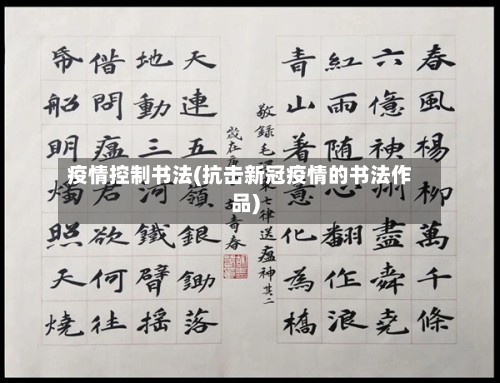 疫情控制书法(抗击新冠疫情的书法作
品)
春風楊柳萬千條
六億神盡舜堯
紅雨随心翻作浪
青山著意化為橋
敬錄毛七律送瘟神其二
歲在庚青春
天連五嶺銀鋤落
地動三河鐵臂摇
借問瘟君欲何往
帋船明燭照天燒